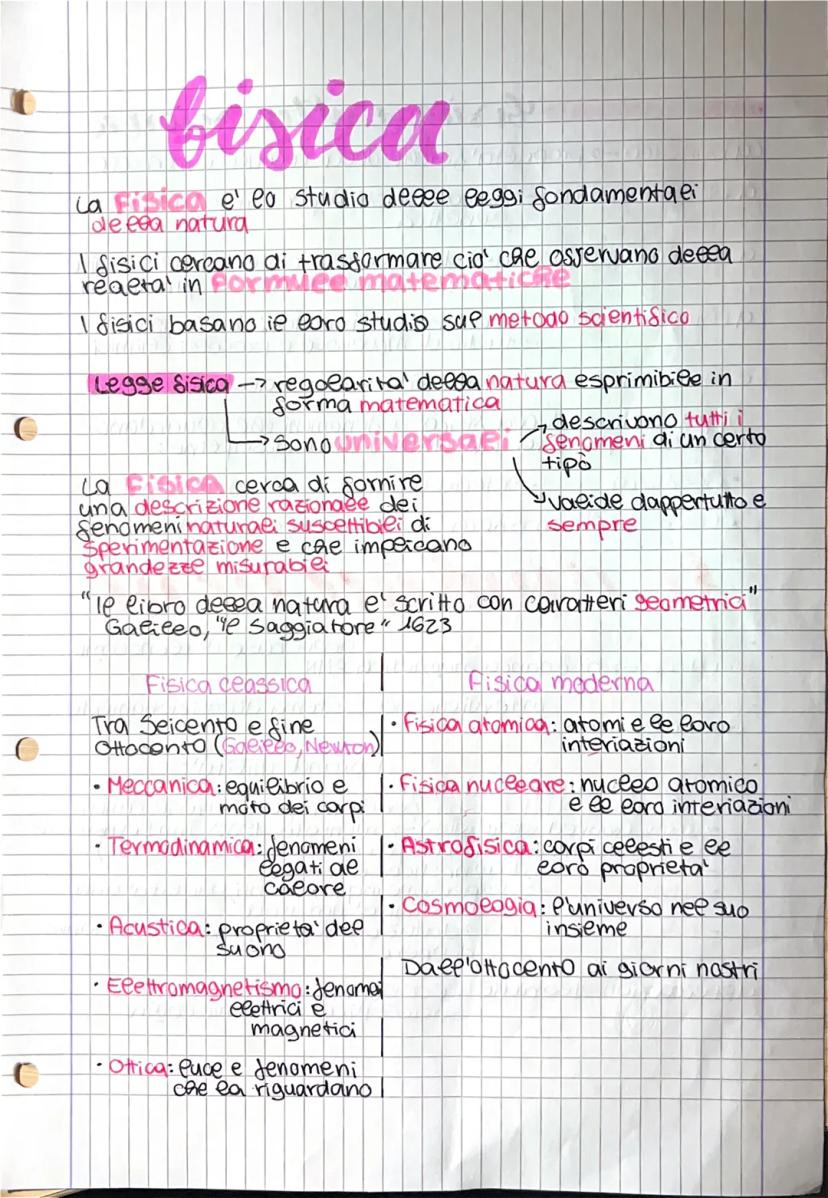 fisica
La fisica e' lo studio delle leggi fondamentali
della natura
I fisici cercano di trasformare cio' che osservano della
realta' in formule matematiche
I fisici basano il loro studio sul metodo scientifico
Legge fisica → regolarita' della natura esprimibile in
forma matematica
→ sono universali
→ descrivono tutti i
fenomeni di un certo
tipo
→ valide dappertutto e
sempre
La fisica cerca di fornire
una descrizione razionale dei
fenomeni naturali suscettibili di
sperimentazione e che implicano
grandezze misurabili
"Il libro della natura e' scritto con caratteri geometrici"
Galileo, "Il Saggiatore" 1623
Fisica classica
Tra Seicento e fine
Ottocento (Galileo, Newton)
• Meccanica: equilibrio e
moto dei corpi
• Termodinamica: fenomeni
legati al
calore
• Acustica: proprieta' del
suono
• Elettromagnetismo: fenomei
elettrici e
magnetici
• Ottica: luce e fenomeni
che la riguardano
Fisica moderna
• Fisica atomica: atomi e le loro
interiazioni
• Fisica nucleare: nucleo atomico
e le loro interiazioni
• Astrofisica: corpi celesti e le
loro proprieta'
• Cosmologia: l'universo nel suo
insieme
Dall'Ottocento ai giorni nostri